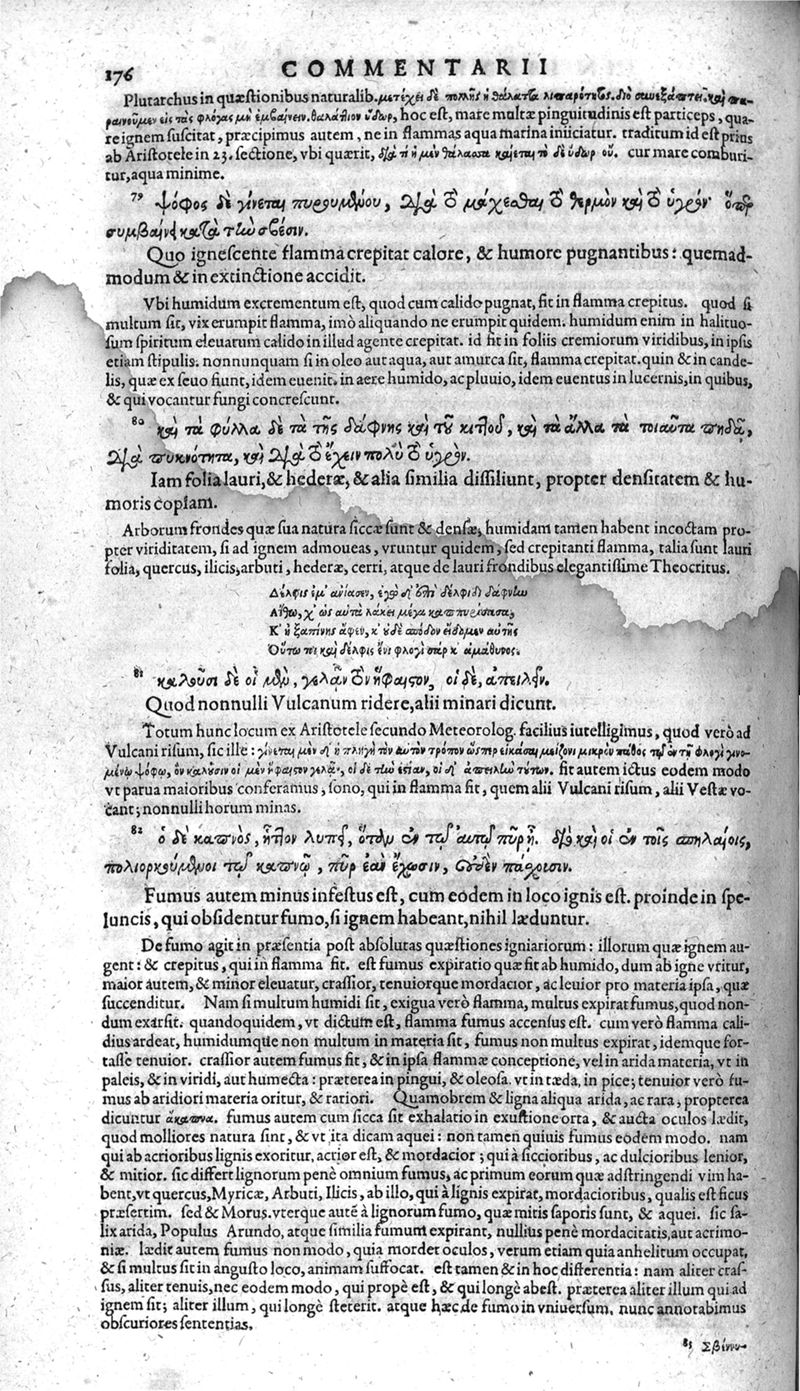 176 COMMENTARII
Plutarchus in quæstionibus naturalib. μετέχει δὲ πολλῆς ἡ θάλαττα λιπαρότητος. διὸ συνεξάπτει. καὶ πα-
ραινοῦμεν εἰς τὰς φλόγας μὴ ἐμβαίνειν θαλάττιον ὕδωρ, hoc est, mare multæ pinguitudinis est particeps, qua-
re ignem suscitat, præcipimus autem, ne in flammas aqua marina iniiciatur. traditum id est prius
ab Aristotele in 23. sectione, vbi quærit, διὰ τί ἡ μὲν θάλασσα καίεται τὸ δὲ ὕδωρ οὔ. cur mare comburi-
tur, aqua minime.
79 Ψόφος δὲ γίνεται πυρουμένου, διὰ τὸ μάχεσθαι τὸ θερμὸν καὶ τὸ ὑγρόν· ὅπερ
συμβαίνει κατὰ τὴν σβέσιν.
Quo ignescente flamma crepitat calore, & humore pugnantibus: quemad-
modum & in extinctione accidit.
Vbi humidum excrementum est, quod cum calido pugnat, fit in flamma crepitus. quod si
multum sit, vix erumpit flamma, imò aliquando ne erumpit quidem. humidum enim in halituo-
sum spiritum eleuatum calido in illud agente crepitat. id fit in foliis cremiorum viridibus, in ipsis
etiam stipulis. nonnunquam si in oleo aut aqua, aut amurca sit, flamma crepitat. quin & in cande-
lis, quæ ex seuo fiunt, idem euenit. in aere humido, ac pluuio, idem euentus in lucernis, in quibus,
& qui vocantur fungi concrescunt.
80 καὶ τὰ φύλλα δὲ τὰ τῆς δάφνης καὶ τοῦ κιττοῦ, καὶ τὰ ἄλλα τὰ τοιαῦτα πηδᾷ,
διὰ πυκνότητα, καὶ διὰ τὸ ἔχειν πολὺ τὸ ὑγρόν.
Iam folia lauri, & hederæ, & alia similia dissiliunt, propter densitatem & hu-
moris copiam.
Arborum frondes quæ sua natura siccæ sunt & densæ, humidam tamen habent incoctam pro-
pter viriditatem, si ad ignem admoueas, vruntur quidem, sed crepitanti flamma, talia sunt lauri
folia, quercus, ilicis, arbuti, hederæ, cerri, atque de lauri frondibus elegantissime Theocritus.
Δέλφις ἔμ' ἀνίασεν, ἐγὼ δ' ἐπὶ δέλφιδι δάφναν
Αἴθω, χ' ὡς αὐτὰ λάκει μέγα καππυρίσασα,
Κ' ἠξαπίνης ἅφθη, κ' οὐδὲ σποδὸν εἴδομεν αὐτῆς
Οὕτω τοι καὶ δέλφις ἐνὶ φλογὶ σάρκ' ἀμαθύνοι.
81 καλοῦσι δὲ οἱ μὲν, γελᾶν τὸν ἥφαιστον, οἱ δὲ, ἀπειλεῖν.
Quod nonnulli Vulcanum ridere, alii minari dicunt.
Totum hunc locum ex Aristotele secundo Meteorolog. facilius iutelligimus, quod verò ad
Vulcani risum, sic ille: γίνεται μὲν δ' ἡ πληγὴ τὸν αὐτὸν τρόπον ὥσπερ εἰκάσαι μείζονι μικρὸν πάθος τῷ ἐν τῇ φλογὶ γινο-
μένῳ ψόφῳ, ὃν καλοῦσιν οἱ μὲν ἥφαιστον γελᾶν, οἱ δὲ τὴν ἑστίαν, οἱ δ' ἀπειλὴν τούτων. fit autem ictus eodem modo
vt parua maioribus conferamus, sono, qui in flamma fit, quem alii Vulcani risum, alii Vestæ vo-
cant; nonnulli horum minas.
82 ὁ δὲ καπνὸς, ἧττον λυπεῖ, ὅταν ἐν τῷ αὐτῷ πῦρ ᾖ. διὸ καὶ οἱ ἐν τοῖς σπηλαίοις,
πολιορκούμενοι τῷ καπνῷ, πῦρ ἐὰν ἔχωσιν, οὐδὲν πάσχουσιν.
Fumus autem minus infestus est, cum eodem in loco ignis est. proinde in spe-
luncis, qui obsidentur fumo, si ignem habeant, nihil læduntur.
De fumo agit in præsentia post absolutas quæstiones igniariorum: illorum quæ ignem au-
gent: & crepitus, qui in flamma fit. est fumus expiratio quæ fit ab humido, dum ab igne vritur,
maior autem, & minor eleuatur, crassior, tenuiorque mordacior, ac leuior pro materia ipsa, quæ
succenditur. Nam si multum humidi sit, exigua verò flamma, multus expirat fumus, quod non-
dum exarsit. quandoquidem, vt dictum est, flamma fumus accensus est. cum verò flamma cali-
dius ardeat, humidumque non multum in materia sit, fumus non multus expirat, idemque for-
tasse tenuior. crassior autem fumus fit, & in ipsa flammæ conceptione, vel in arida materia, vt in
paleis, & in viridi, aut humecta: præterea in pingui, & oleosa. vt in tæda, in pice; tenuior verò fu-
mus ab aridiori materia oritur, & rariori. Quamobrem & ligna aliqua arida, ac rara, propterea
dicuntur ἄκαπνα. fumus autem cum sicca sit exhalatio in exustione orta, & aucta oculos lædit,
quod molliores natura sint, & vt ita dicam aquei: non tamen quiuis fumus eodem modo. nam
qui ab acrioribus lignis exoritur, acrior est, & mordacior; qui à siccioribus, ac dulcioribus lenior,
& mitior. sic differt lignorum penè omnium fumus, ac primum eorum quæ adstringendi vim ha-
bent, vt quercus, Myricæ, Arbuti, Ilicis, ab illo, qui à lignis expirat, mordacioribus, qualis est ficus
præsertim. sed & Morus. vterque autē à lignorum fumo, quæ mitis saporis sunt, & aquei. sic sa-
lix arida, Populus Arundo, atque similia fumum expirant, nullius penè mordacitatis, aut acrimo-
niæ. lædit autem fumus non modo, quia mordet oculos, verum etiam quia anhelitum occupat,
& si multus sit in angusto loco, animam suffocat. est tamen & in hoc differentia: nam aliter cras-
sus, aliter tenuis, nec eodem modo, qui propè est, & qui longè abest. præterea aliter illum qui ad
ignem sit; aliter illum, qui longè steterit. atque hæc de fumo in vniuersum. nunc annotabimus
obscuriores sententias.
83 Σβίννυ-